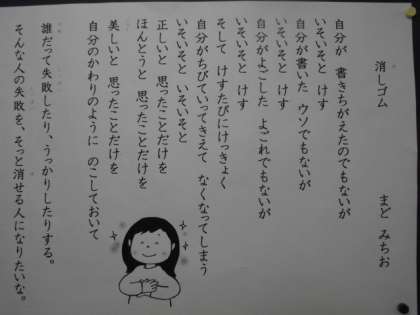 消しゴム
まど みちお
自分が 書きちがえたのでもないが
いそいそと けす
自分が書いた ウソでもないが
いそいそと けす
自分がよごした よごれでもないが
いそいそと けす
そして けすたびにけっきょく
自分がちびていってきえて なくなってしまう
いそいそと いそいそと
正しいと 思ったことだけを
ほんとうと 思ったことだけを
美しいと 思ったことだけを
自分のかわりのように のこしておいて
誰だって失敗したり、うっかりしたりする。
そんな人の失敗を、そっと消せる人になりたいな。